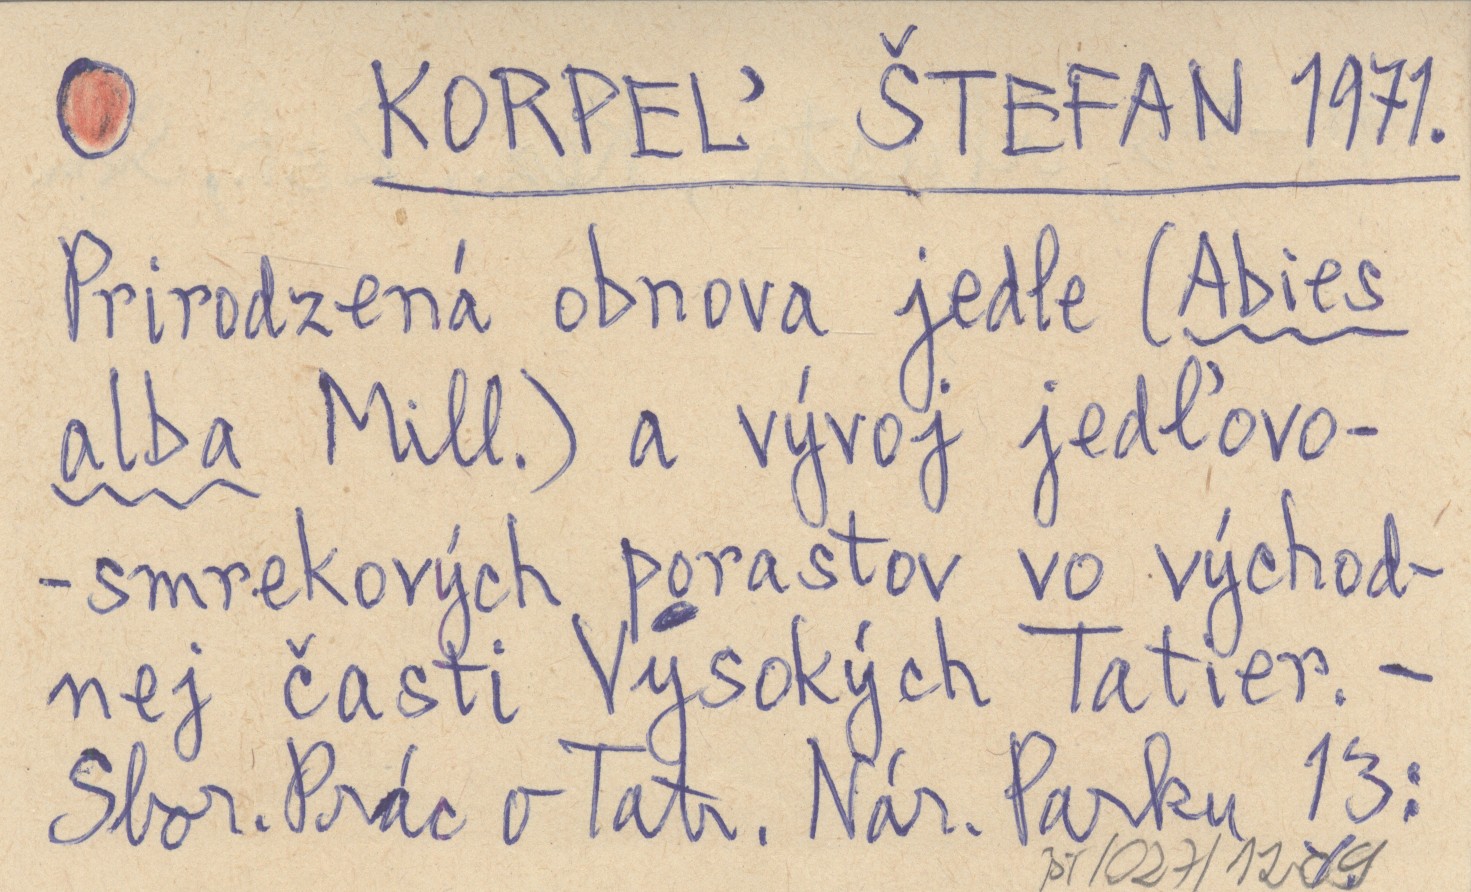 KORPEĽ ŠTEFAN 1971.
Prirodzená obnova jedle (Abies
alba Mill.) a vývoj jedľovo-
-smrekových porastov vo východ-
nej časti Vysokých Tatier. -
Sbor. Prác o Tatr. Nár. Parku 13: